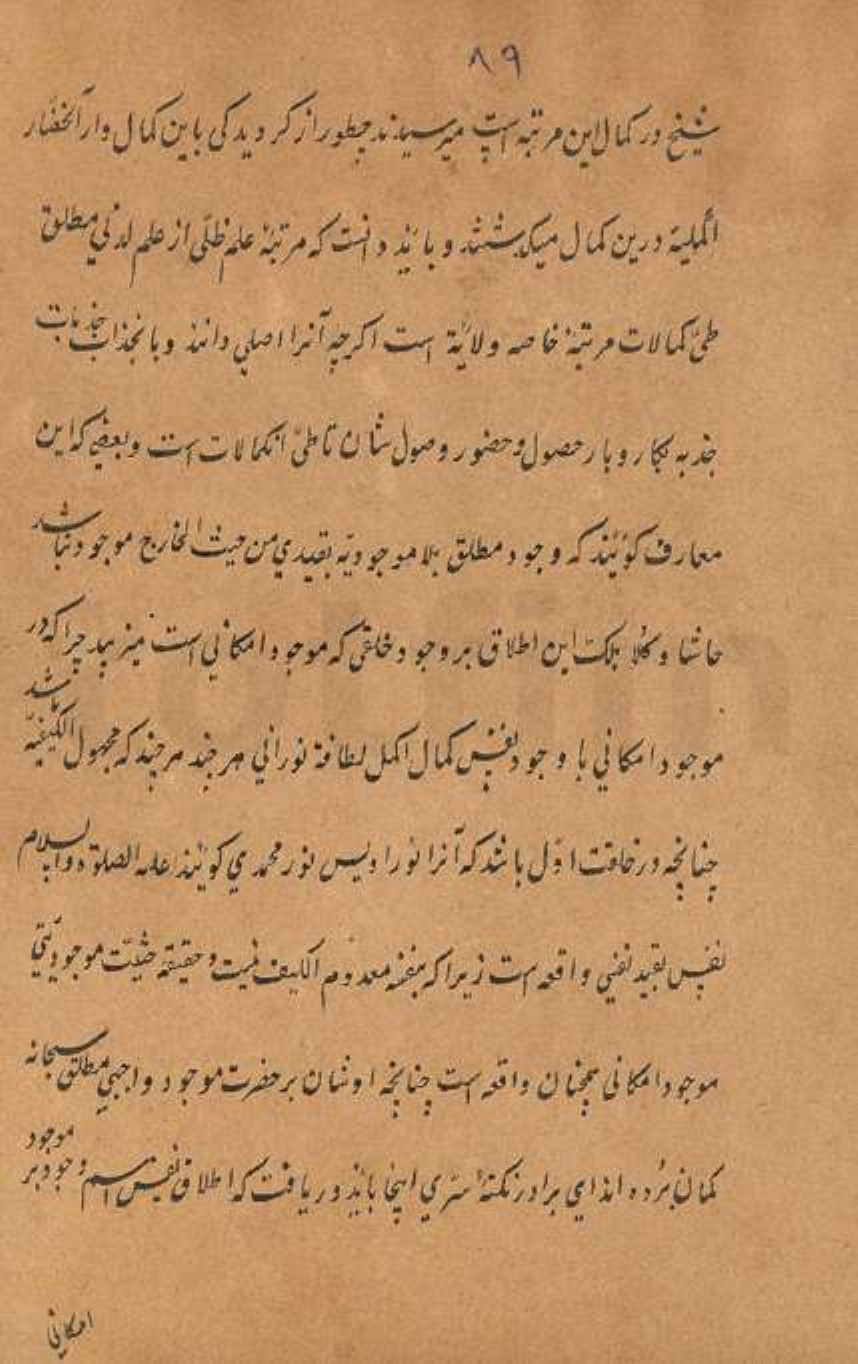 ۸۹
شیخ در کمال این مرتبه است میرسیدند چطور از کر دیدکی باین کمال وار
اکملیة درین کمال میکشتند و بائید دانست که مرتبۀ علم ظلّی از علم لدنی مطلق
طیّ کمالات مرتبۀ خاصه ولائیة است اکرچه آنرا اصلی دانند و بانجذاب جذبات
جذبه بکاروبار حصول و حضور وصول شان تا طیّ انکمالات است و بعضی که این
معارف کوئیند که وجود مطلق بلا موجودیّه بقیدی من حیث الخارج موجود نباشد
حاشا و کلا بلکّ این اطلاق بر وجود خلقی که موجود امکانی است میزیبد چرا که در
موجود امکانی با وجود نفس کمال اکمل لطافة نورانی هر چند هر چند که مجهول الکیفیّه باشد
چنانچه در خلقت اوّل باشد که آنرا نور اویس نور محمدی کوئیند علیه الصلوة والسلام
نفس بقید نفی واقعه است زیرا که بنفسه معدوم الکیف نیست و حقیقة حیثیّت موجودیّتی
موجود امکانی همچنان واقعه است چنانچه اوشان بر حضرت موجود واجبی مطلق سبحانه
کمان برده اند ای برادر نکتۀ سرّی اینجا بائید دریافت که اطلاق نفس اسم وجود بر موجود
امکانی